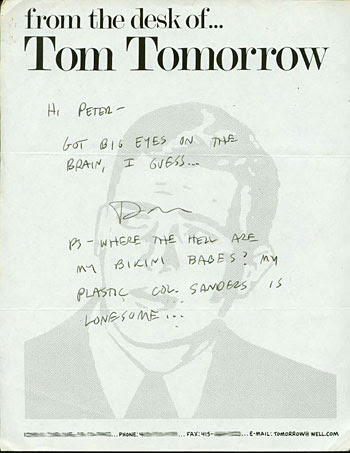 from the desk of...
Tom Tomorrow
HI PETER-
GOT BIG EYES ON THE
BRAIN, I GUESS...
PS - WHERE THE HELL ARE
MY BIKINI BABES? MY
PLASTIC COL. SANDERS IS
LONESOME...
...PHONE: 4 ... FAX: 415- ... E-MAIL: TOMORROW@WELL.COM